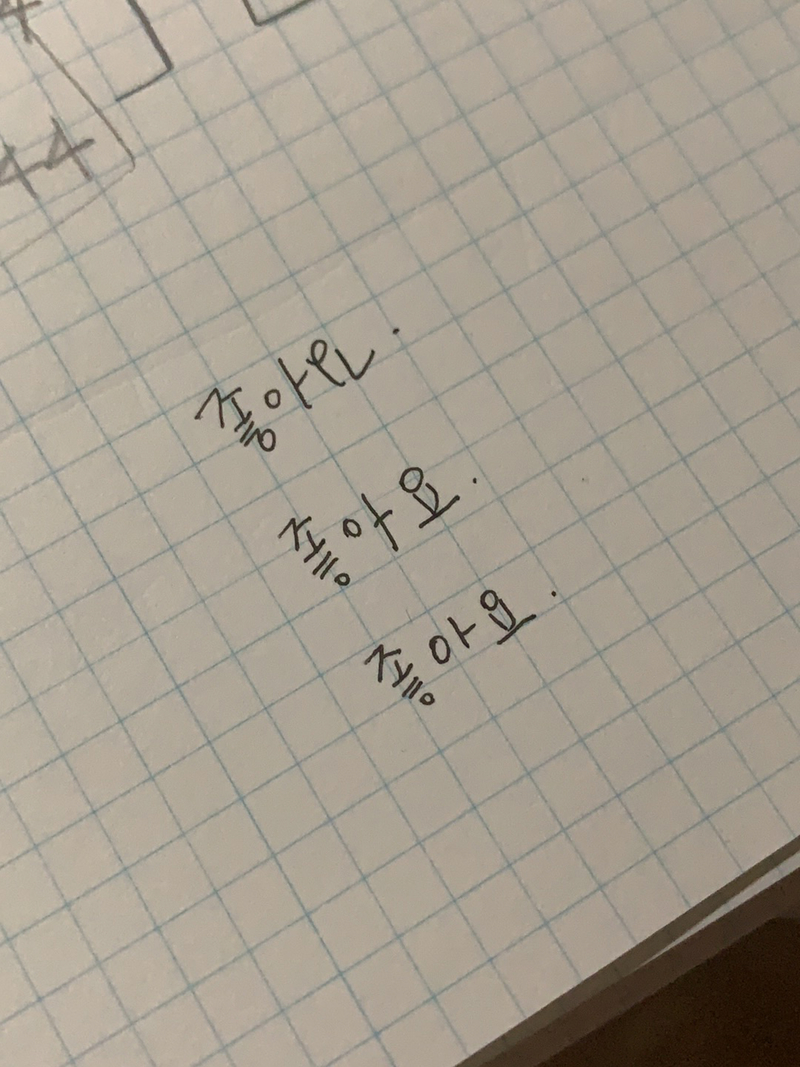 44
좋아요.
좋아요.
좋아요.